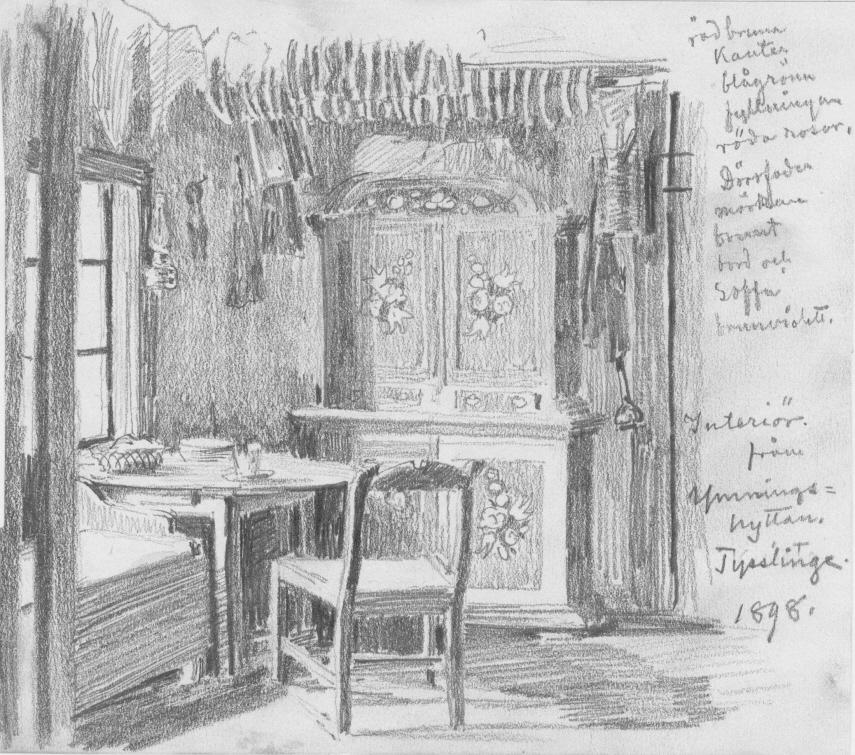 rödbruna
Kanter
blågröna
fyllningar
röda rosor.
Dörrfoder
mörkare
brunt
bord och
Soffa
Interiör.
från
Ymnings=
hyttan.
Tysslinge.
1898.